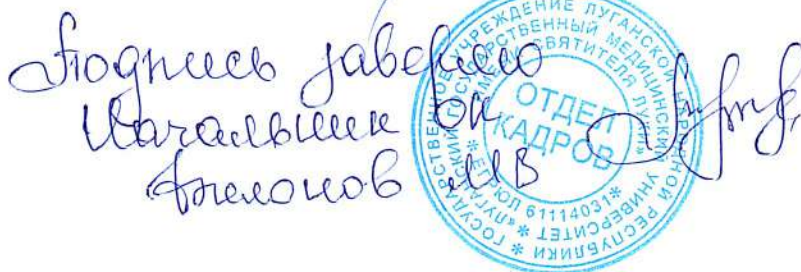 Подпись заверяю
Начальник ОК
МВ
ГОСУДАРСТВЕННОЕ УЧРЕЖДЕНИЕ ЛУГАНСКОЙ НАРОДНОЙ РЕСПУБЛИКИ *
«ЛУГАНСКИЙ ГОСУДАРСТВЕННЫЙ МЕДИЦИНСКИЙ УНИВЕРСИТЕТ
ИМЕНИ СВЯТИТЕЛЯ ЛУКИ»
* ЕГРЮЛ 61114031 *
ОТДЕЛ
КАДРОВ